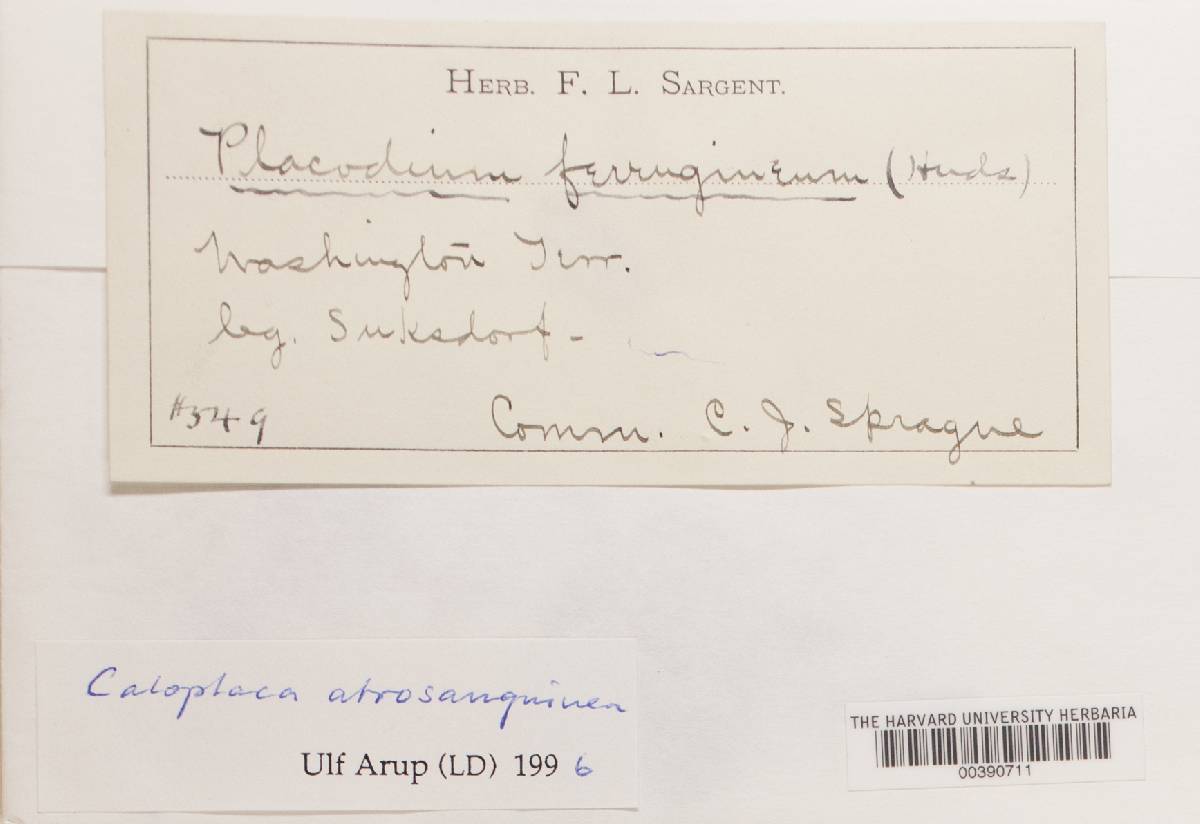 HERB. F. L. SARGENT.
Placodium ferrugineum (Huds)
Washingtōn Terr.
leg. Suksdorf -
#549 Comm. C. J. Sprague
Caloplaca atrosanguinea
Ulf Arup (LD) 1996
THE HARVARD UNIVERSITY HERBARIA
00390711